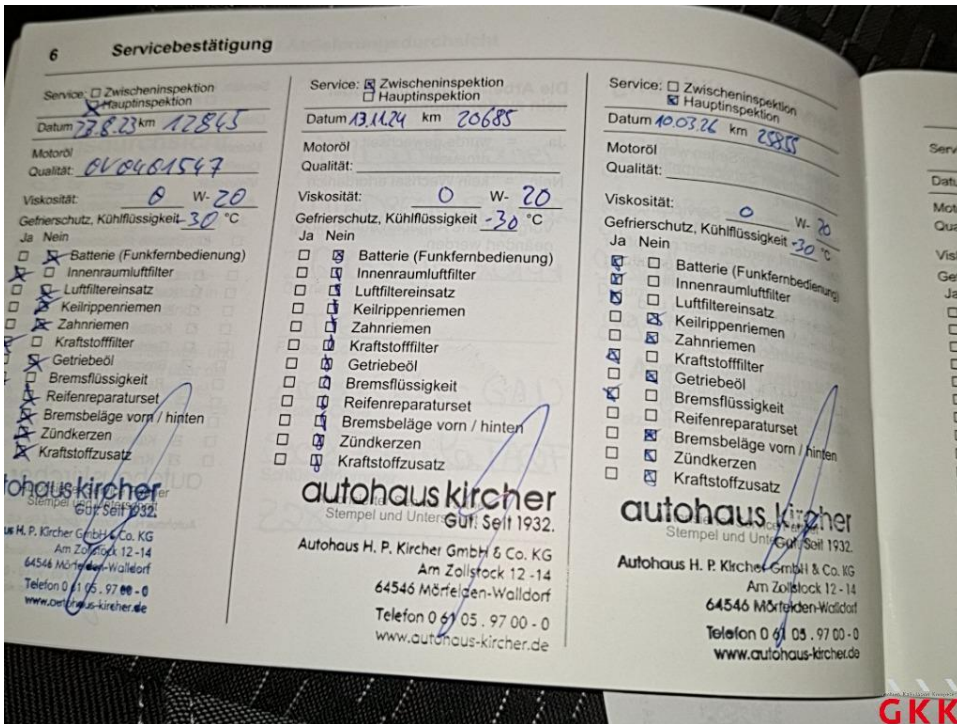 6 Servicebestätigung
Service: Zwischeninspektion
Hauptinspektion
Datum 23.8.23 km 12845
Motoröl
Qualität: OV0401547
Viskosität: 0 W- 20
Gefrierschutz, Kühlflüssigkeit -30 °C
Ja Nein
Batterie (Funkfernbedienung)
Innenraumluftfilter
Luftfiltereinsatz
Keilrippenriemen
Zahnriemen
Kraftstofffilter
Getriebeöl
Bremsflüssigkeit
Reifenreparaturset
Bremsbeläge vorn / hinten
Zündkerzen
Kraftstoffzusatz
tohaus kircher
Stempel und Unterschrift
Gut. Seit 1932.
us H. P. Kircher GmbH & Co. KG
Am Zollstock 12 - 14
64546 Mörfelden-Walldorf
Telefon 0 61 05 . 97 00 - 0
www.autohaus-kircher.de
Service: Zwischeninspektion
Hauptinspektion
Datum 13.11.24 km 20685
Motoröl
Qualität:
Viskosität: 0 W- 20
Gefrierschutz, Kühlflüssigkeit -30 °C
Ja Nein
Batterie (Funkfernbedienung)
Innenraumluftfilter
Luftfiltereinsatz
Keilrippenriemen
Zahnriemen
Kraftstofffilter
Getriebeöl
Bremsflüssigkeit
Reifenreparaturset
Bremsbeläge vorn / hinten
Zündkerzen
Kraftstoffzusatz
autohaus kircher
Stempel und Unters
Gut. Seit 1932.
Autohaus H. P. Kircher GmbH & Co. KG
Am Zollstock 12 - 14
64546 Mörfelden-Walldorf
Telefon 0 61 05 . 97 00 - 0
www.autohaus-kircher.de
Service: Zwischeninspektion
Hauptinspektion
Datum 10.03.26 km 25855
Motoröl
Qualität:
Viskosität: 0 W- 20
Gefrierschutz, Kühlflüssigkeit -30 °C
Ja Nein
Batterie (Funkfernbedienung)
Innenraumluftfilter
Luftfiltereinsatz
Keilrippenriemen
Zahnriemen
Kraftstofffilter
Getriebeöl
Bremsflüssigkeit
Reifenreparaturset
Bremsbeläge vorn / hinten
Zündkerzen
Kraftstoffzusatz
autohaus kircher
Stempel und Unte
Gut. Seit 1932.
Autohaus H. P. Kircher GmbH & Co. KG
Am Zollstock 12 - 14
64546 Mörfelden-Walldorf
Telefon 0 61 05 . 97 00 - 0
www.autohaus-kircher.de
Serv
Datu
Mot
Qua
Vis
Ge
Ja
GKK